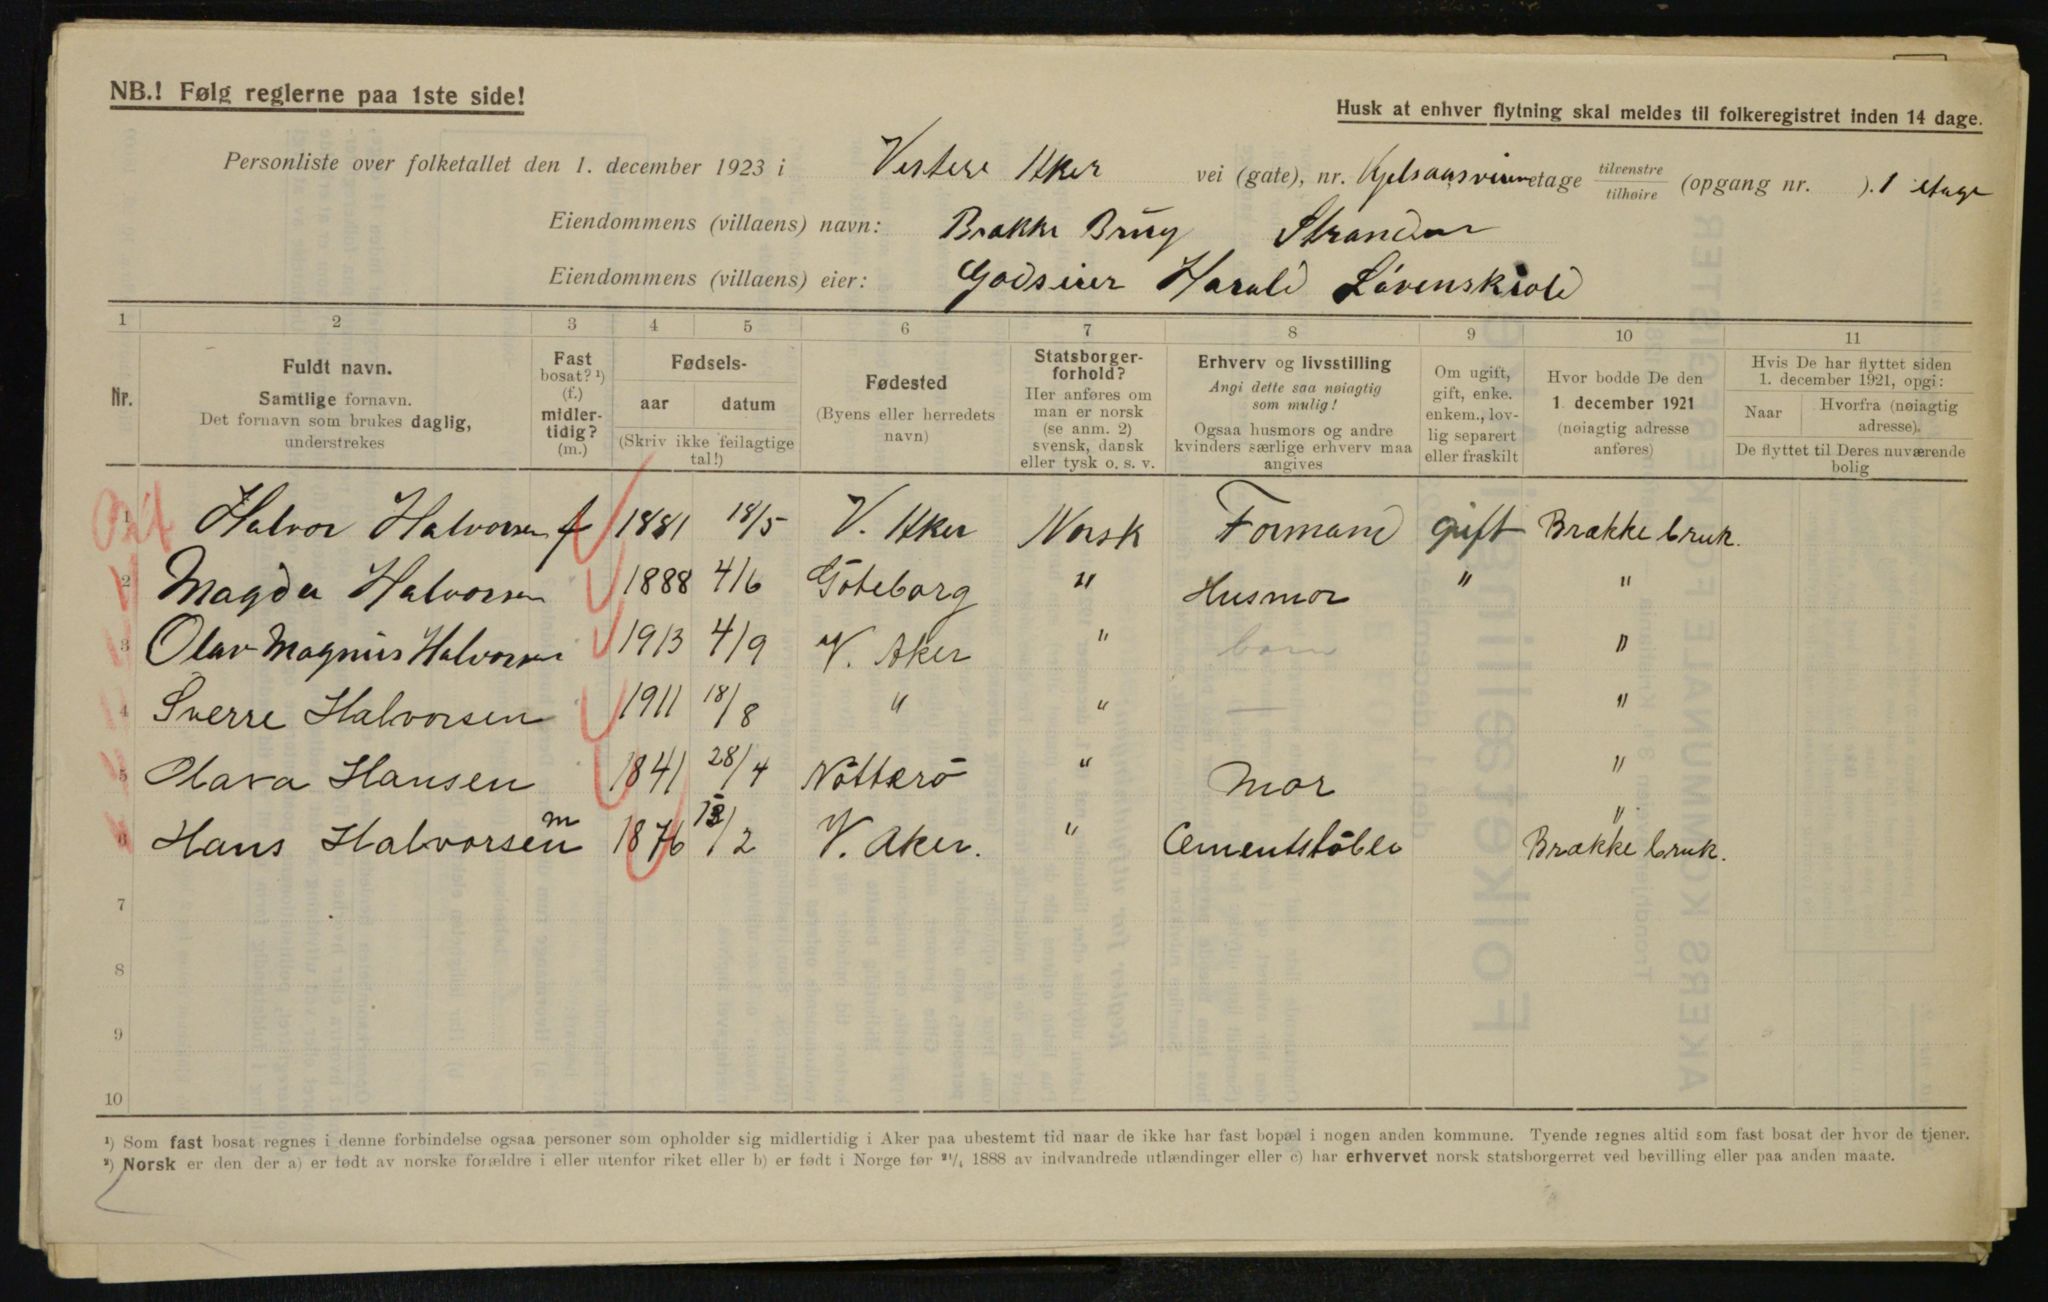 NB.! Følg reglerne paa 1ste side!
Husk at enhver flytning skal meldes til folkeregistret inden 14 dage.
Personliste over folketallet den 1. december 1923 i Vestere Aker vei (gate), nr. Kjelsaasveien etage tilvenstre/tilhøire (opgang nr. ). 1 etage
Eiendommens (villaens) navn: Brække Brug Stranden
Eiendommens (villaens) eier: Godseier Harald Lövenskiold
1 2 3 4 5 6 7 8 9 10 11
Nr.
Fuldt navn.
Samtlige fornavn.
Det fornavn som brukes daglig,
understrekes
Fast
bosat? ¹)
(f.)
midler-
tidig?
(m.)
Fødsels-
aar datum
(Skriv ikke feilagtige
tal!)
Fødested
(Byens eller herredets
navn)
Statsborger-
forhold?
Her anføres om
man er norsk
(se anm. 2)
svensk, dansk
eller tysk o. s. v.
Erhverv og livsstilling
Angi dette saa nøiagtig
som mulig!
Ogsaa husmors og andre
kvinders særlige erhverv maa
angives
Om ugift,
gift, enke.
enkem., lov-
lig separert
eller fraskilt
Hvor bodde De den
1. december 1921
(nøiagtig adresse
anføres)
Hvis De har flyttet siden
1. december 1921, opgi:
Naar Hvorfra (nøiagtig
adresse).
De flyttet til Deres nuværende
bolig
1 Halvor Halvorsen f 1881 18/5 V. Aker Norsk Formand gift Brække bruk.
2 Magda Halvorsen 1888 4/6 Göteborg " Husmor " "
3 Olav Magnus Halvorsen 1913 4/9 V. Aker " barn "
4 Sverre Halvorsen 1911 18/8 " " "
5 Olava Hansen 1841 28/4 Nötterö " Mor "
6 Hans Halvorsen m 1876 /2 V. Aker. " Cementstöber " Brække bruk.
7
8
9
10
¹) Som fast bosat regnes i denne forbindelse ogsaa personer som opholder sig midlertidig i Aker paa ubestemt tid naar de ikke har fast bopæl i nogen anden kommune. Tyende regnes altid som fast bosat der hvor de tjener.
²) Norsk er den der a) er født av norske forældre i eller utenfor riket eller b) er født i Norge før ²¹/₄ 1888 av indvandrede utlændinger eller c) har erhvervet norsk statsborgerret ved bevilling eller paa anden maate.